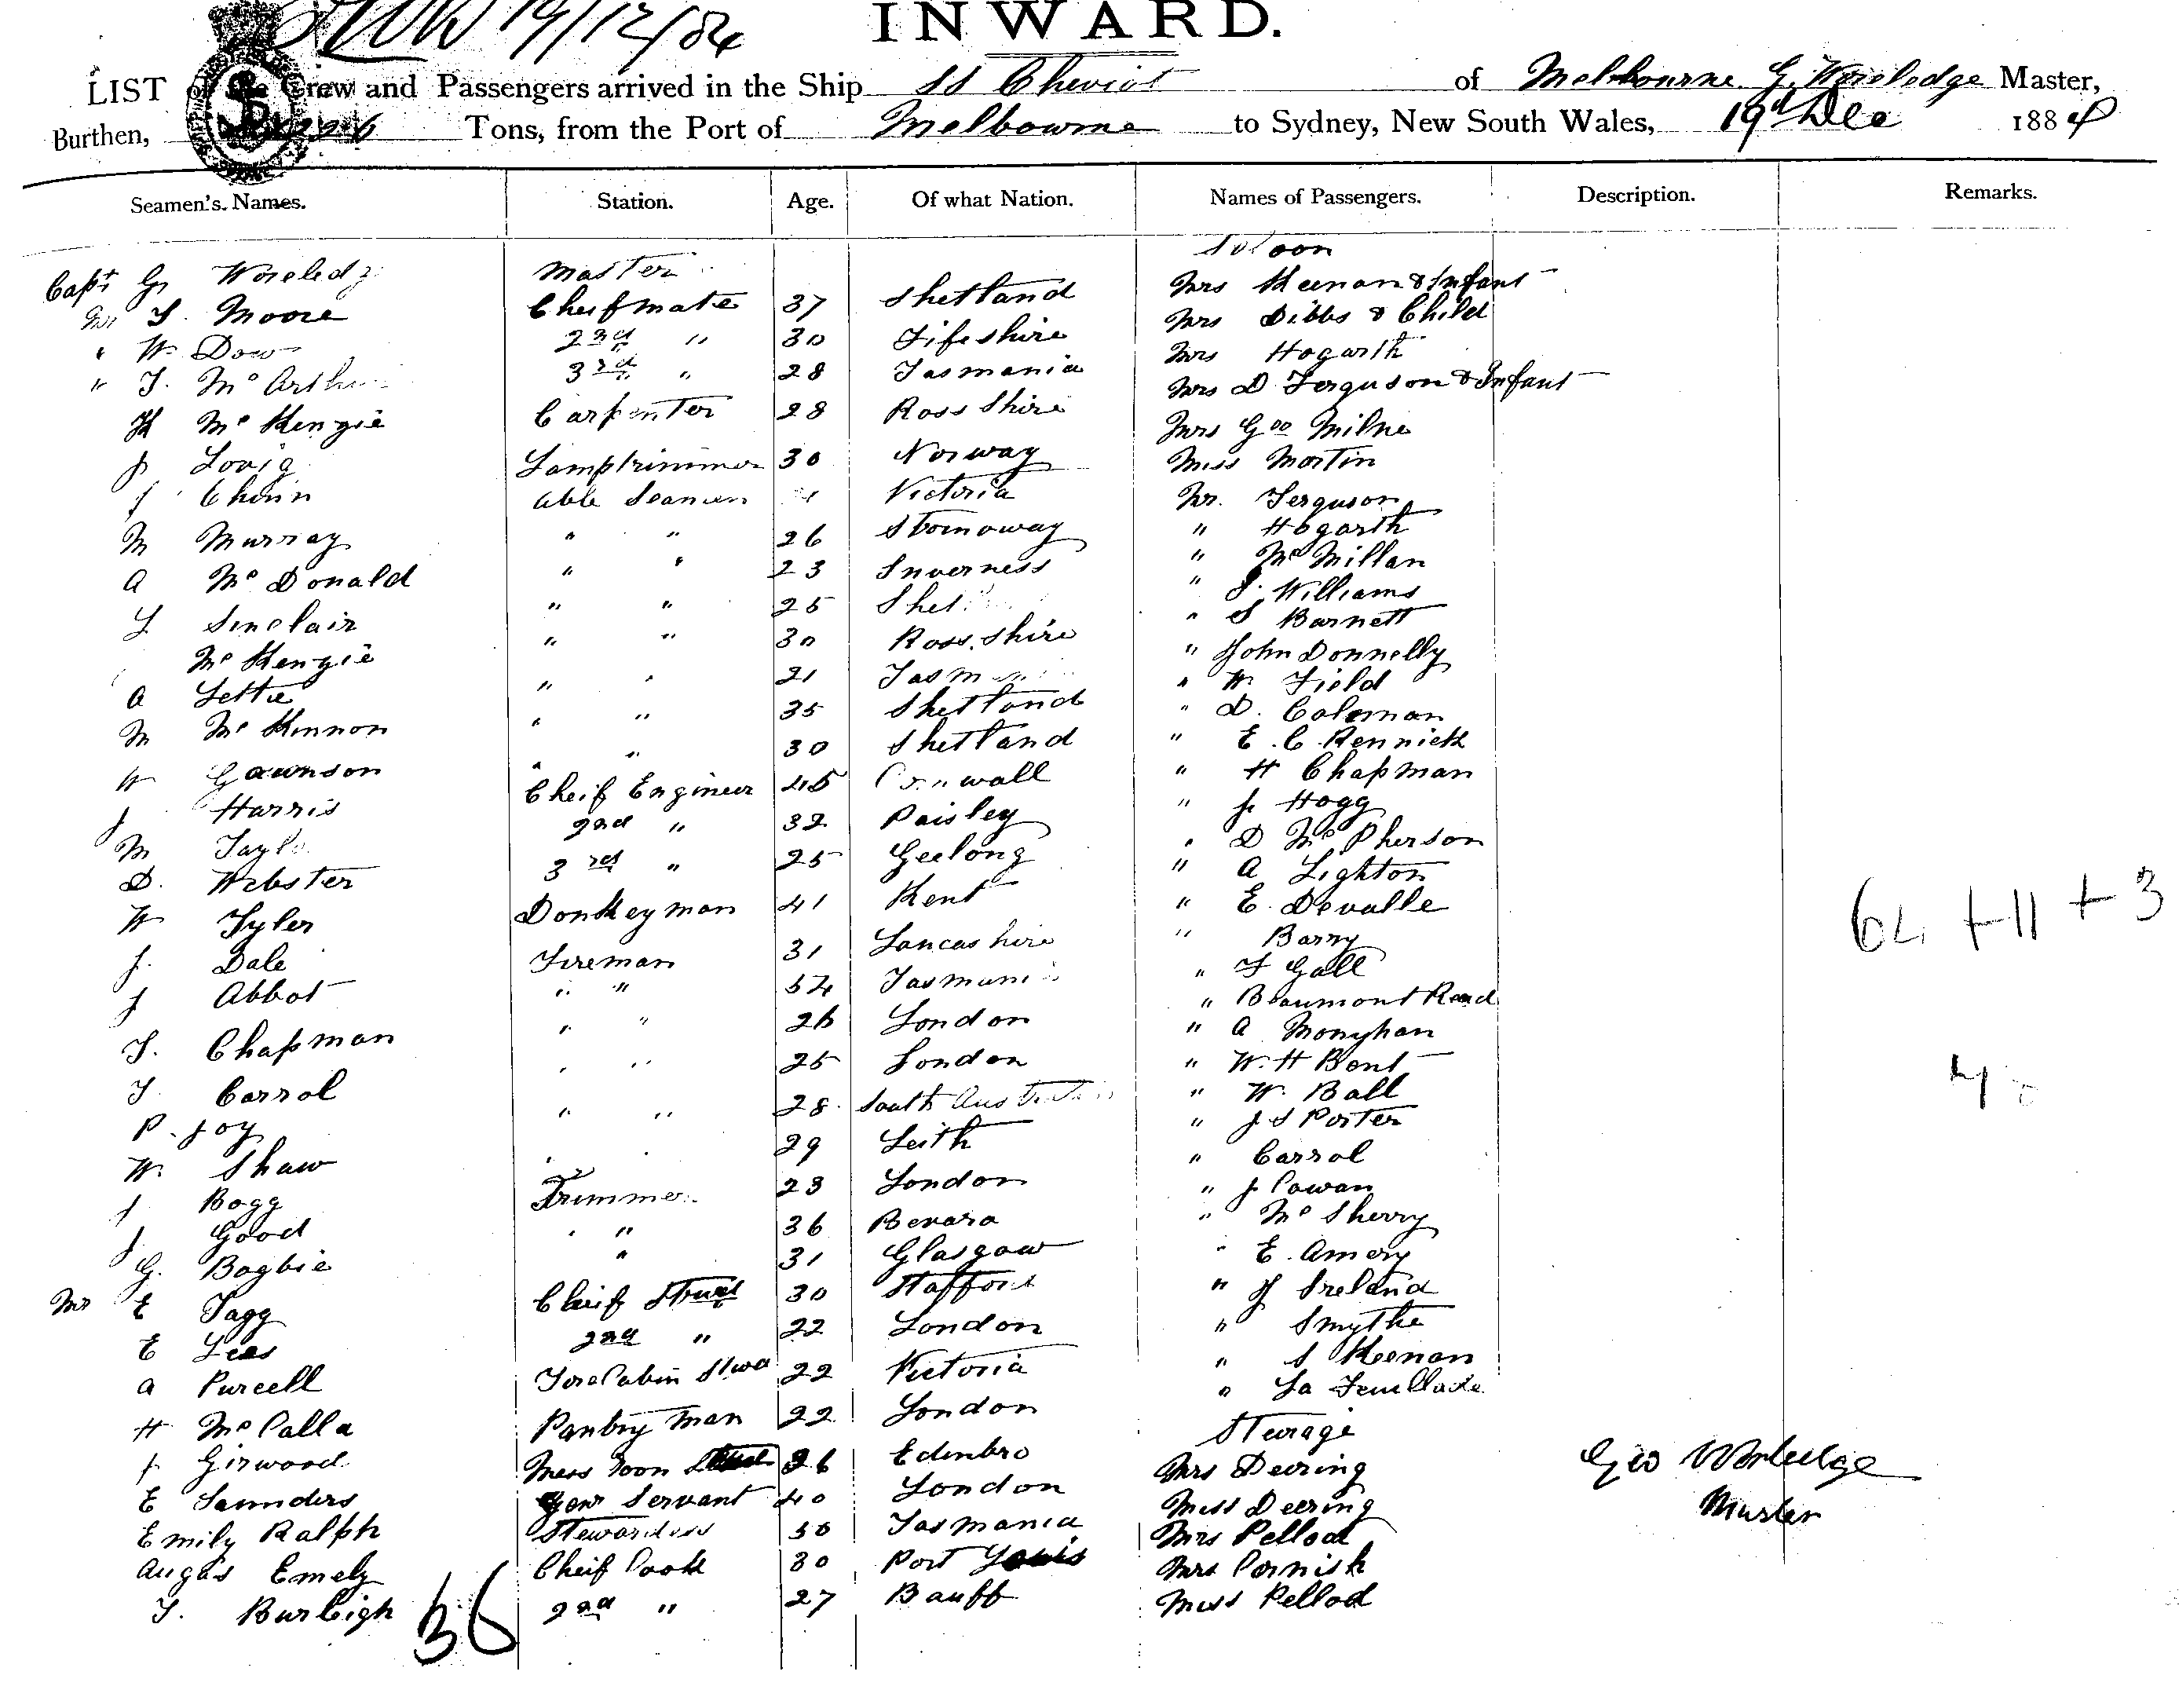 19/12/84
INWARD.
LIST of the Crew and Passengers arrived in the Ship SS Cheviot of Melbourne G. Worledge Master,
Burthen, 1226 Tons, from the Port of Melbourne to Sydney, New South Wales, 19th Dec 1884
Seamen's Names. Station. Age. Of what Nation. Names of Passengers. Description. Remarks.
Saloon
Capt G Worledg Master Mrs Keenan & Infant
Mr T. Moore Cheif mate 37 Shetland Mrs Dibbs & Child
" W. Dow 2nd " 30 Fifeshire Mrs Hogarth
" J. McArthu 3rd " 28 Tasmania Mrs D Ferguson & Infant
K McKenzie Carpenter 28 Ross Shire Mrs Geo Milne
J Lovig Lamptrimmer 30 Norway Miss Martin
J Able Seamen Victoria Mr. Ferguson
M Murray " " 26 Stornoway " Hogarth
A McDonald " " 23 Inverness " McMillan
L Sinclair " " 25 Shet " S. Williams
McKenzie " " 30 Ross. Shire " S Barnett
A Lettie " " 21 Tasm " John Donnelly
M McKinnon " " 35 Shetland " W. Field
W Gawnson " " 30 Shetland " D. Coleman
J Harris Cheif Engineer 45 Cornwall " E. C. Rennick
M Taylo 2nd " 32 Paisley " H Chapman
D. Webster 3rd " 25 Geelong " J. Hogg
W Tyler Donkeyman 41 Kent " D McPherson
J. Dale Fireman 31 Lancashire " A Lighton
J Abbot " " 54 Tasmani " E. Devalle
T. Chapman " " 26 London " Barry
T. Carrol " " 25 London " F Gall
P. Joy " " 28 South Austra " Beaumont Read
W. Shaw " " 29 Leith " A Monyhan
J Bogg Trimmer 23 London " W. H Bent
J. Good " " 36 " W. Ball
G. Bagbie " 31 Glasgow " J S Porter
Mr E Tagg Cheif Stwd 30 Stafford " Carrol
E Lees 2nd " 22 London " J Cowan
A Purcell Fore Cabin Stwd 22 Victoria " McSherry
H McCalla Pantry Man 22 London " E. Amery
J Girwood Mess Room 26 Edinbro " J Ireland
E Saunders Genr Servant 40 London " Smythe
Emily Ralph Stewardess 50 Tasmania " S Keenan
Augas Emely Cheif Cook 30 Port Louis " La Feuillade
T. Burleigh 2nd " 27 Banff
Steerage
Mrs Deering
Miss Deering
Mrs Pellod
Mrs Cornish
Miss Pellod
36
64 + 11 + 3
Geo Worledge
Master